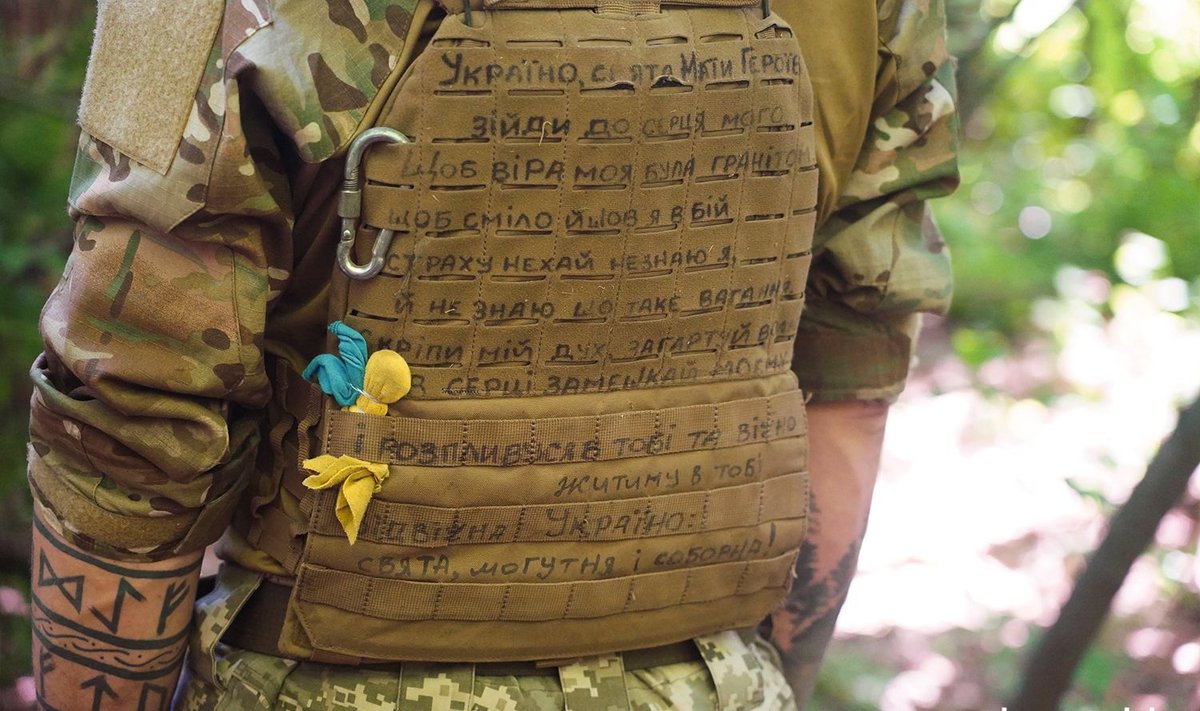 Україно, свята Мати Героїв
зійди до серця мого
щоб віра моя була гранітом
щоб сміло йшов я в бій
страху нехай незнаю я,
й не знаю що таке вагання
скріпи мій дух загартуй
в серці замешкай моєму
розпливуся в тобі та вічно
житиму в тобі
Одвічна Україно:
свята, могутня і соборна!